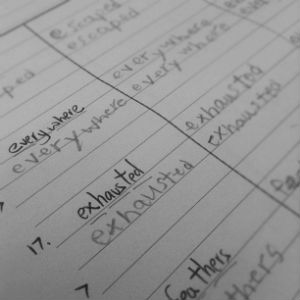 escaped
escaped
everywhere
everywhere
exhausted
exhausted
everywhere
everywhere
17. exhausted
exhausted
7 feathers